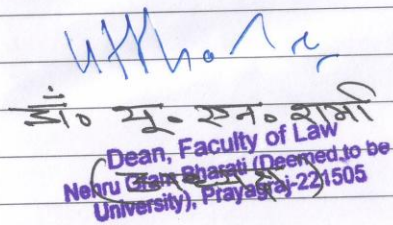 डॉ० यू० एन० शर्मा
Dean, Faculty of Law
Nehru Gram Bharati (Deemed to be
University), Prayagraj-221505